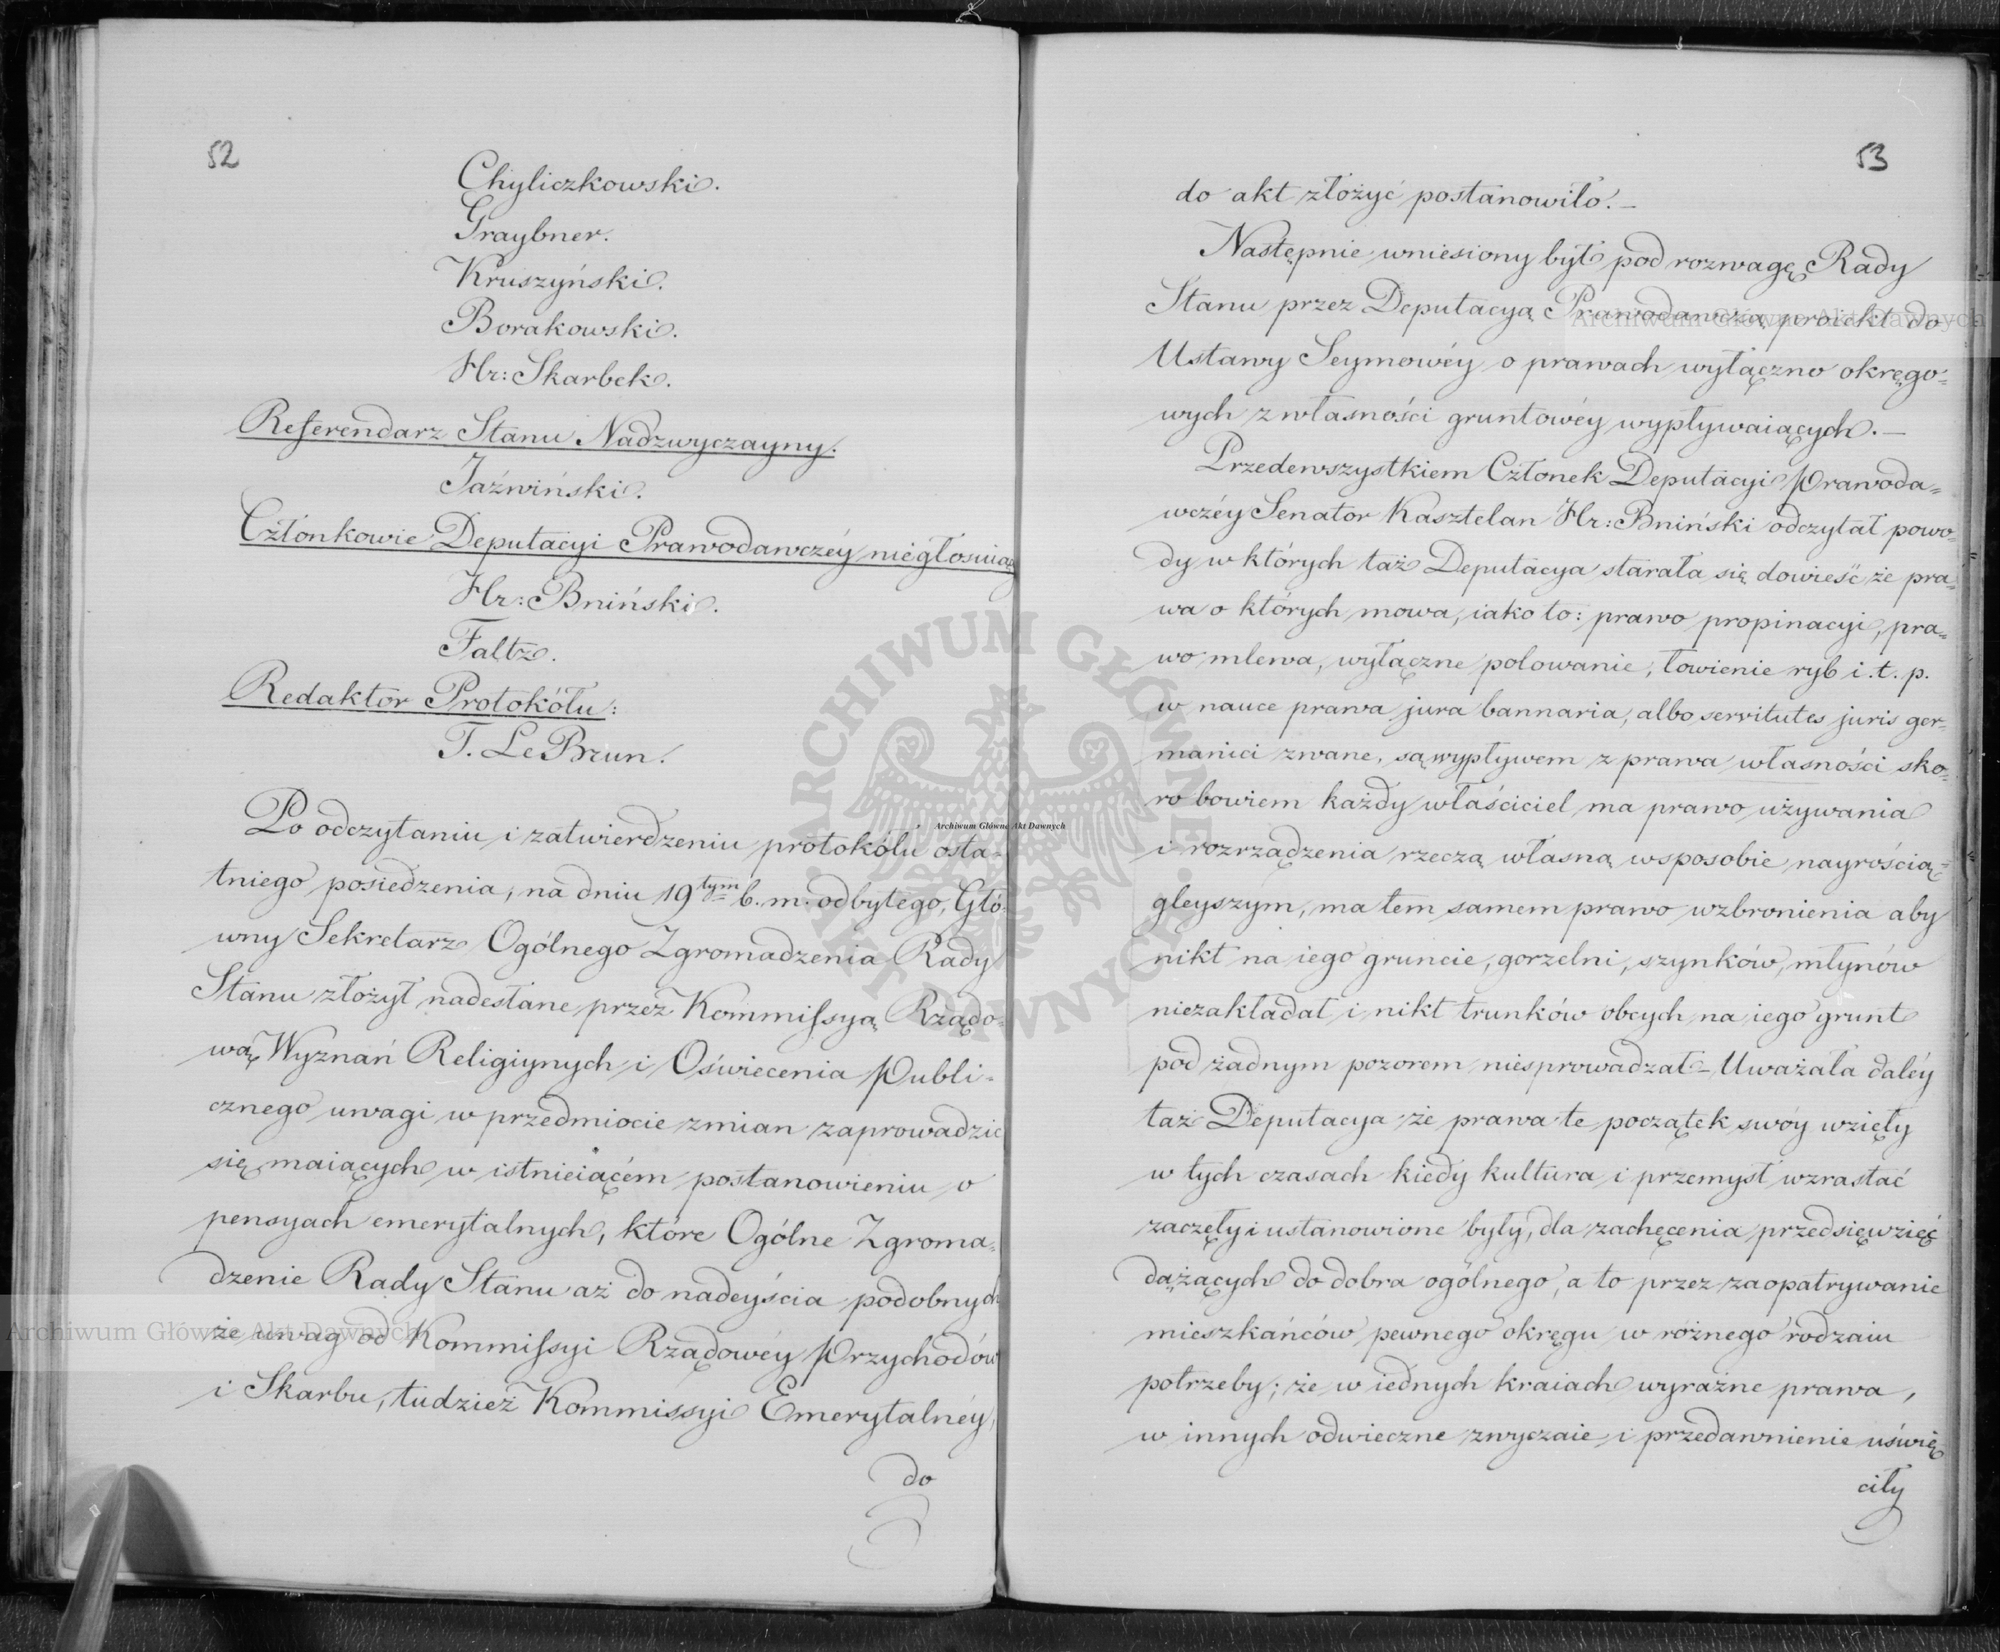 52
Chyliczkowski.
Graybner.
Kruszyński.
Borakowski.
Hr: Skarbek.
Referendarz Stanu Nadzwyczayny.
Jaźwiński.
Członkowie Deputacyi Prawodawczéy
Hr: Bniński.
Faltz.
Redaktor Protokółu:
T. Le Brun.
Po odczytaniu i zatwierdzeniu protokólu osta-
tniego posiedzenia, na dniu 19tym b. m. odbytego, Głó-
wny Sekretarz Ogólnego Zgromadzenia Rady
Stanu złożył nadesłane przez Kommissyą Rządo-
wą Wyznań Religiynych i Oświecenia Publi-
cznego uwagi w przedmiocie zmian zaprowadzić
się maiących w istnieiącém postanowieniu o
pensyach emerytalnych, które Ogólne Zgroma-
dzenie Rady Stanu aż do nadeyścia podobnych
że uwag od Kommissyi Rządowéy Przychodów
i Skarbu, tudzież Kommissyi Emerytalnéy,
do
53
do akt złożyć postanowiło. —
Następnie wniesiony był pod rozwagę Rady
Stanu przez Deputacyą Prawodawczą proiekt do
Ustawy Seymowéy o prawach wyłączno okręgo-
wych z własności gruntowéy wypływaiących. —
Przedewszystkiem Członek Deputacyi Prawoda-
wczéy Senator Kasztelan Hr: Bniński odczytał powo-
dy w których taż Deputacya starała się dowieść że pra-
wa o których mowa, iako to: prawo propinacyi, pra-
wo mlewa, wyłączne polowanie, łowienie ryb i. t. p.
w nauce prawa jura bannaria, albo servitutes juris ger-
manici zwane, są wypływem z prawa własności sko-
ro bowiem każdy właściciel ma prawo używania
i rozrządzenia rzeczą własną w sposobie nayrością-
gleyszym, ma tem samem prawo wzbronienia aby
nikt na iego gruncie, gorzelni, szynków, młynów
niezakładał i nikt trunków obcych na iego grunt
pod żadnym pozorem niesprowadzał — Uważała daléy
taż Deputacya że prawa te początek swóy wzięły
w tych czasach kiedy kultura i przemysł wzrastać
zaczęły i ustanowione były, dla zachęcenia przedsięwzięć
dążących do dobra ogólnego, a to przez zaopatrywanie
mieszkańców pewnego okręgu w różnego rodzaiu
potrzeby; że w iednych kraiach wyraźne prawa,
w innych odwieczne zwyczaie i przedawnienie uświę
ciły
Archiwum Główne Akt Dawnych
Archiwum Główne Akt Dawnych
Archiwum Główne Akt Dawnych
ARCHIWUM GŁÓWNE AKT DAWNYCH